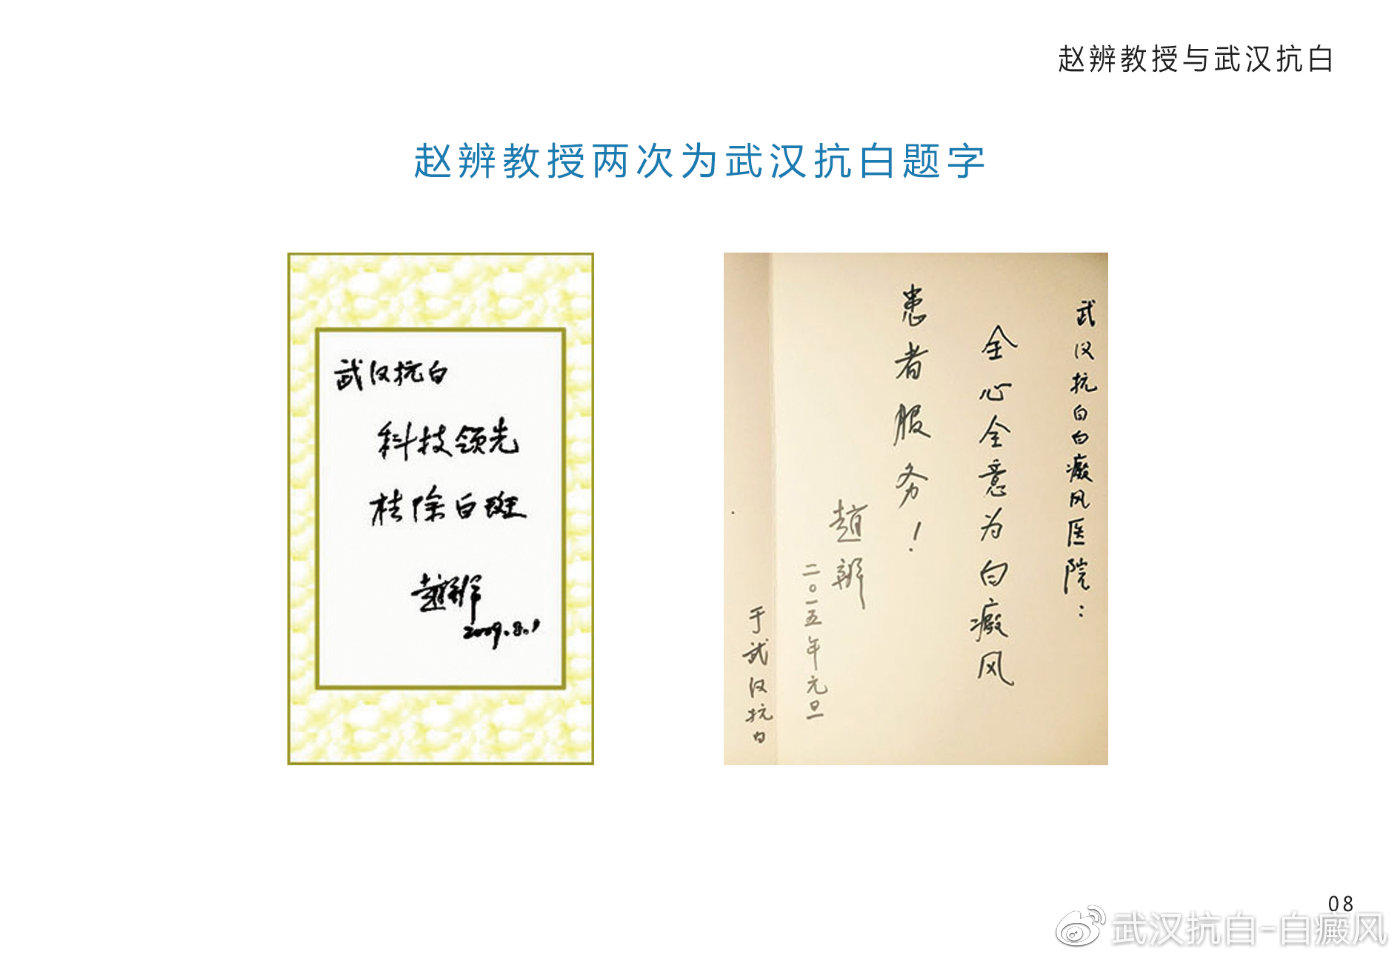 赵辨教授与武汉抗白
赵辨教授两次为武汉抗白题字
武汉抗白
科技领先
祛除白斑
趙辨
2009.8.1
武汉抗白白癜风医院：
全心全意为白癜风
患者服务！
趙辨
二〇一五年元旦
于武汉抗白
08
武汉抗白-白癜风